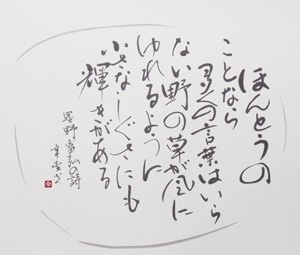 ほんとうの
ことなら
多くの言葉はいら
ない野の草が風に
ゆれるように
小さなしぐさにも
輝きがある
星野富弘の詩